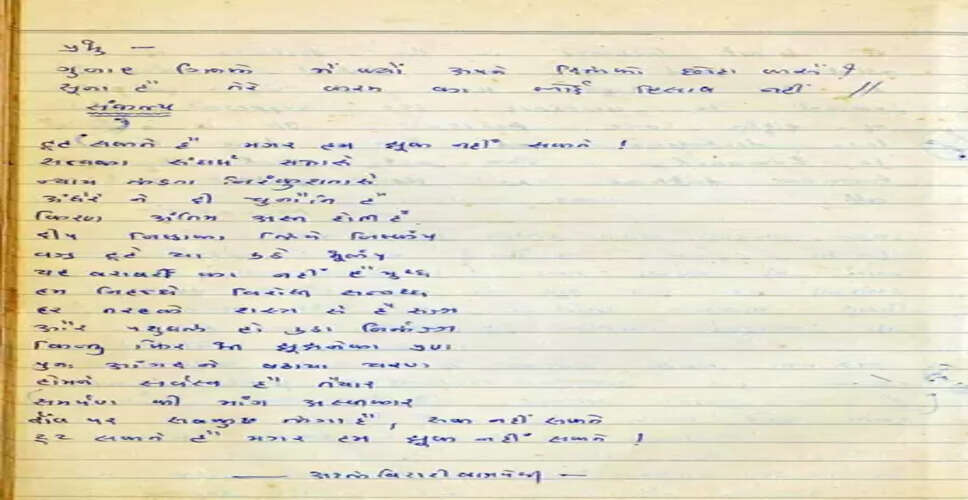 प्रभु —
गुनाह गिनके मैं क्यों अपने दिलको छोटा करूँ ?
सुना है तेरे करम का कोई हिसाब नहीं //
संकल्प
टूट सकते हैं मगर हम झूक नहीं सकते !
सत्यका संघर्ष सत्तासे
न्याय लडता निरंकुशतासे
अंधेरे ने दी चुनौति है
किरण अंतिम अस्त होती है
दीप निष्ठाका लिये निष्कंप
वज्र टूटे या उठे भूकंप
यह बराबरी का नहीं है युध्ध
हम निहत्थे विरोधी सन्नध्ध
हर तरहके शस्त्र से है सज्ज
और पशुबल हो उठा निर्लज्ज
किन्तु फिर भी झूझनेका प्रण
पुनः अंगद ने बढाया चरण
होमने सर्वस्व है तैयार
समर्पण की मांग अस्वीकार
दांव पर सबकुछ लगा है, रूक नहीं सकते
टूट सकते हैं मगर हम झूक नहीं सकते !
— अटल बिहारी वाजपेयी —